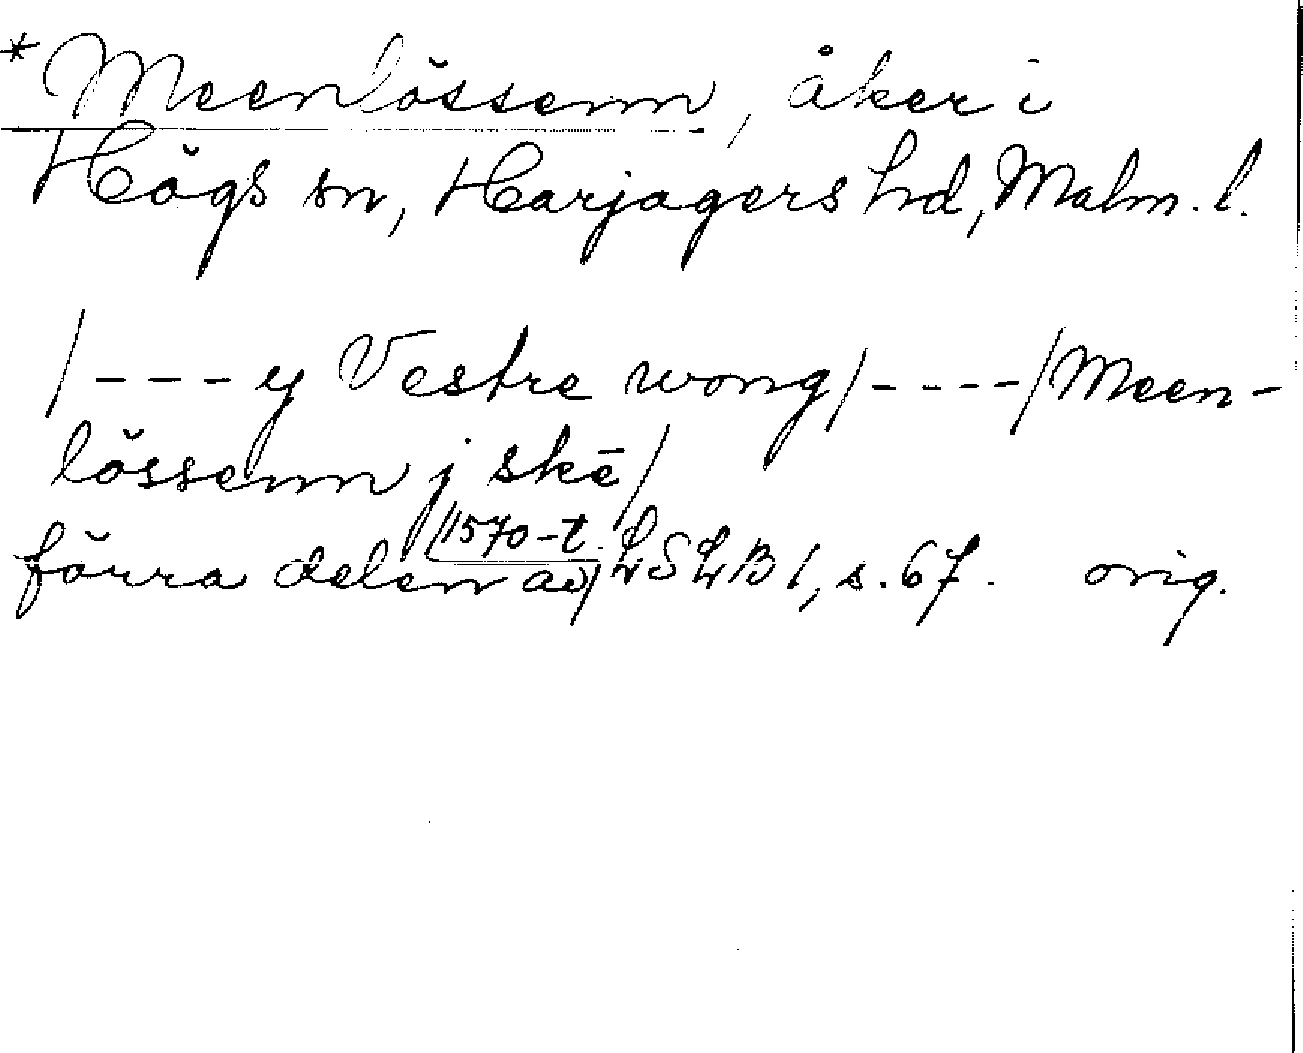 *Meenlössenn, åker i
Högs sn, Harjagers hd, Malm. l.
/---y Vestre wong/----/Meen-
lössenn j skē/
förra delen av /1570-t./ LSLB 1, s. 67. orig.